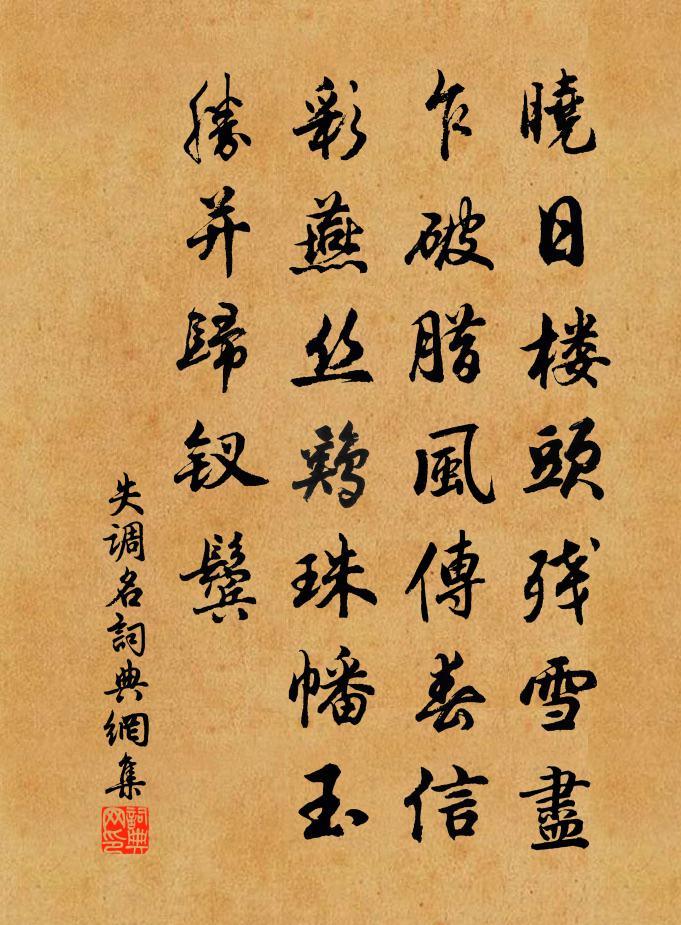 曉日楼頭残雪盡
乍破腊風傳春信
彩燕丝鷄珠幡玉
勝并歸釵鬢
失調名詞典網集
詞典网印